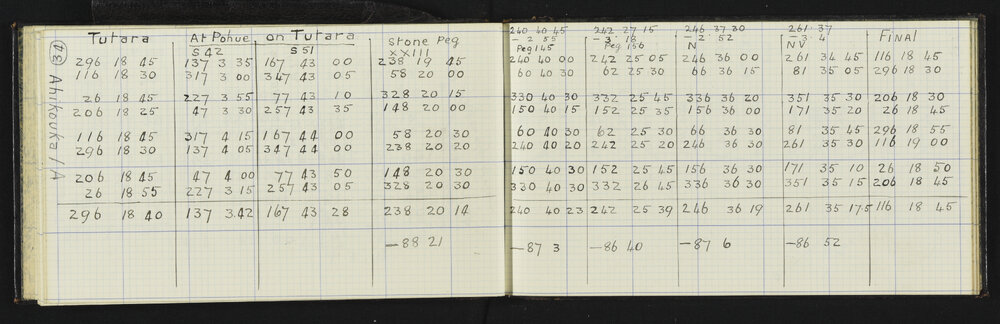 240 40 45 242 27 15 246 37 30 261 37
Tutara At Pohue on Tutara Stone Peg - 2 55 - 3 18 - 2 52 - 3 4 FINAL
S 42 S 51 XXIII Peg 145 Peg 156 N NV
296 18 45 137 3 35 167 43 00 238 19 45 240 40 00 242 25 05 246 36 00 261 34 45 116 18 45
116 18 30 317 3 00 347 43 05 58 20 00 60 40 30 62 25 30 66 36 15 81 35 05 296 18 30
26 18 45 227 3 55 77 43 10 328 20 15 330 40 30 332 25 45 336 36 20 351 35 30 206 18 30
206 18 25 47 3 30 257 43 35 148 20 00 150 40 15 152 25 35 156 36 00 171 35 20 26 18 45
116 18 45 317 4 15 167 44 00 58 20 30 60 40 30 62 25 30 66 36 30 81 35 45 296 18 55
296 18 30 137 4 05 347 44 00 238 20 20 240 40 20 242 25 20 246 36 30 261 35 30 116 19 00
206 18 45 47 4 00 77 43 50 148 20 30 150 40 30 152 25 45 156 36 30 171 35 10 26 18 50
26 18 55 227 3 15 257 43 05 328 20 30 330 40 30 332 26 45 336 36 30 351 35 15 206 18 45
296 18 40 137 3 42 167 43 28 238 20 14 240 40 23 242 25 39 246 36 19 261 35 17.5 116 18 45
-88 21 -87 3 -86 40 -87 6 -86 52
Ahikouka 1A